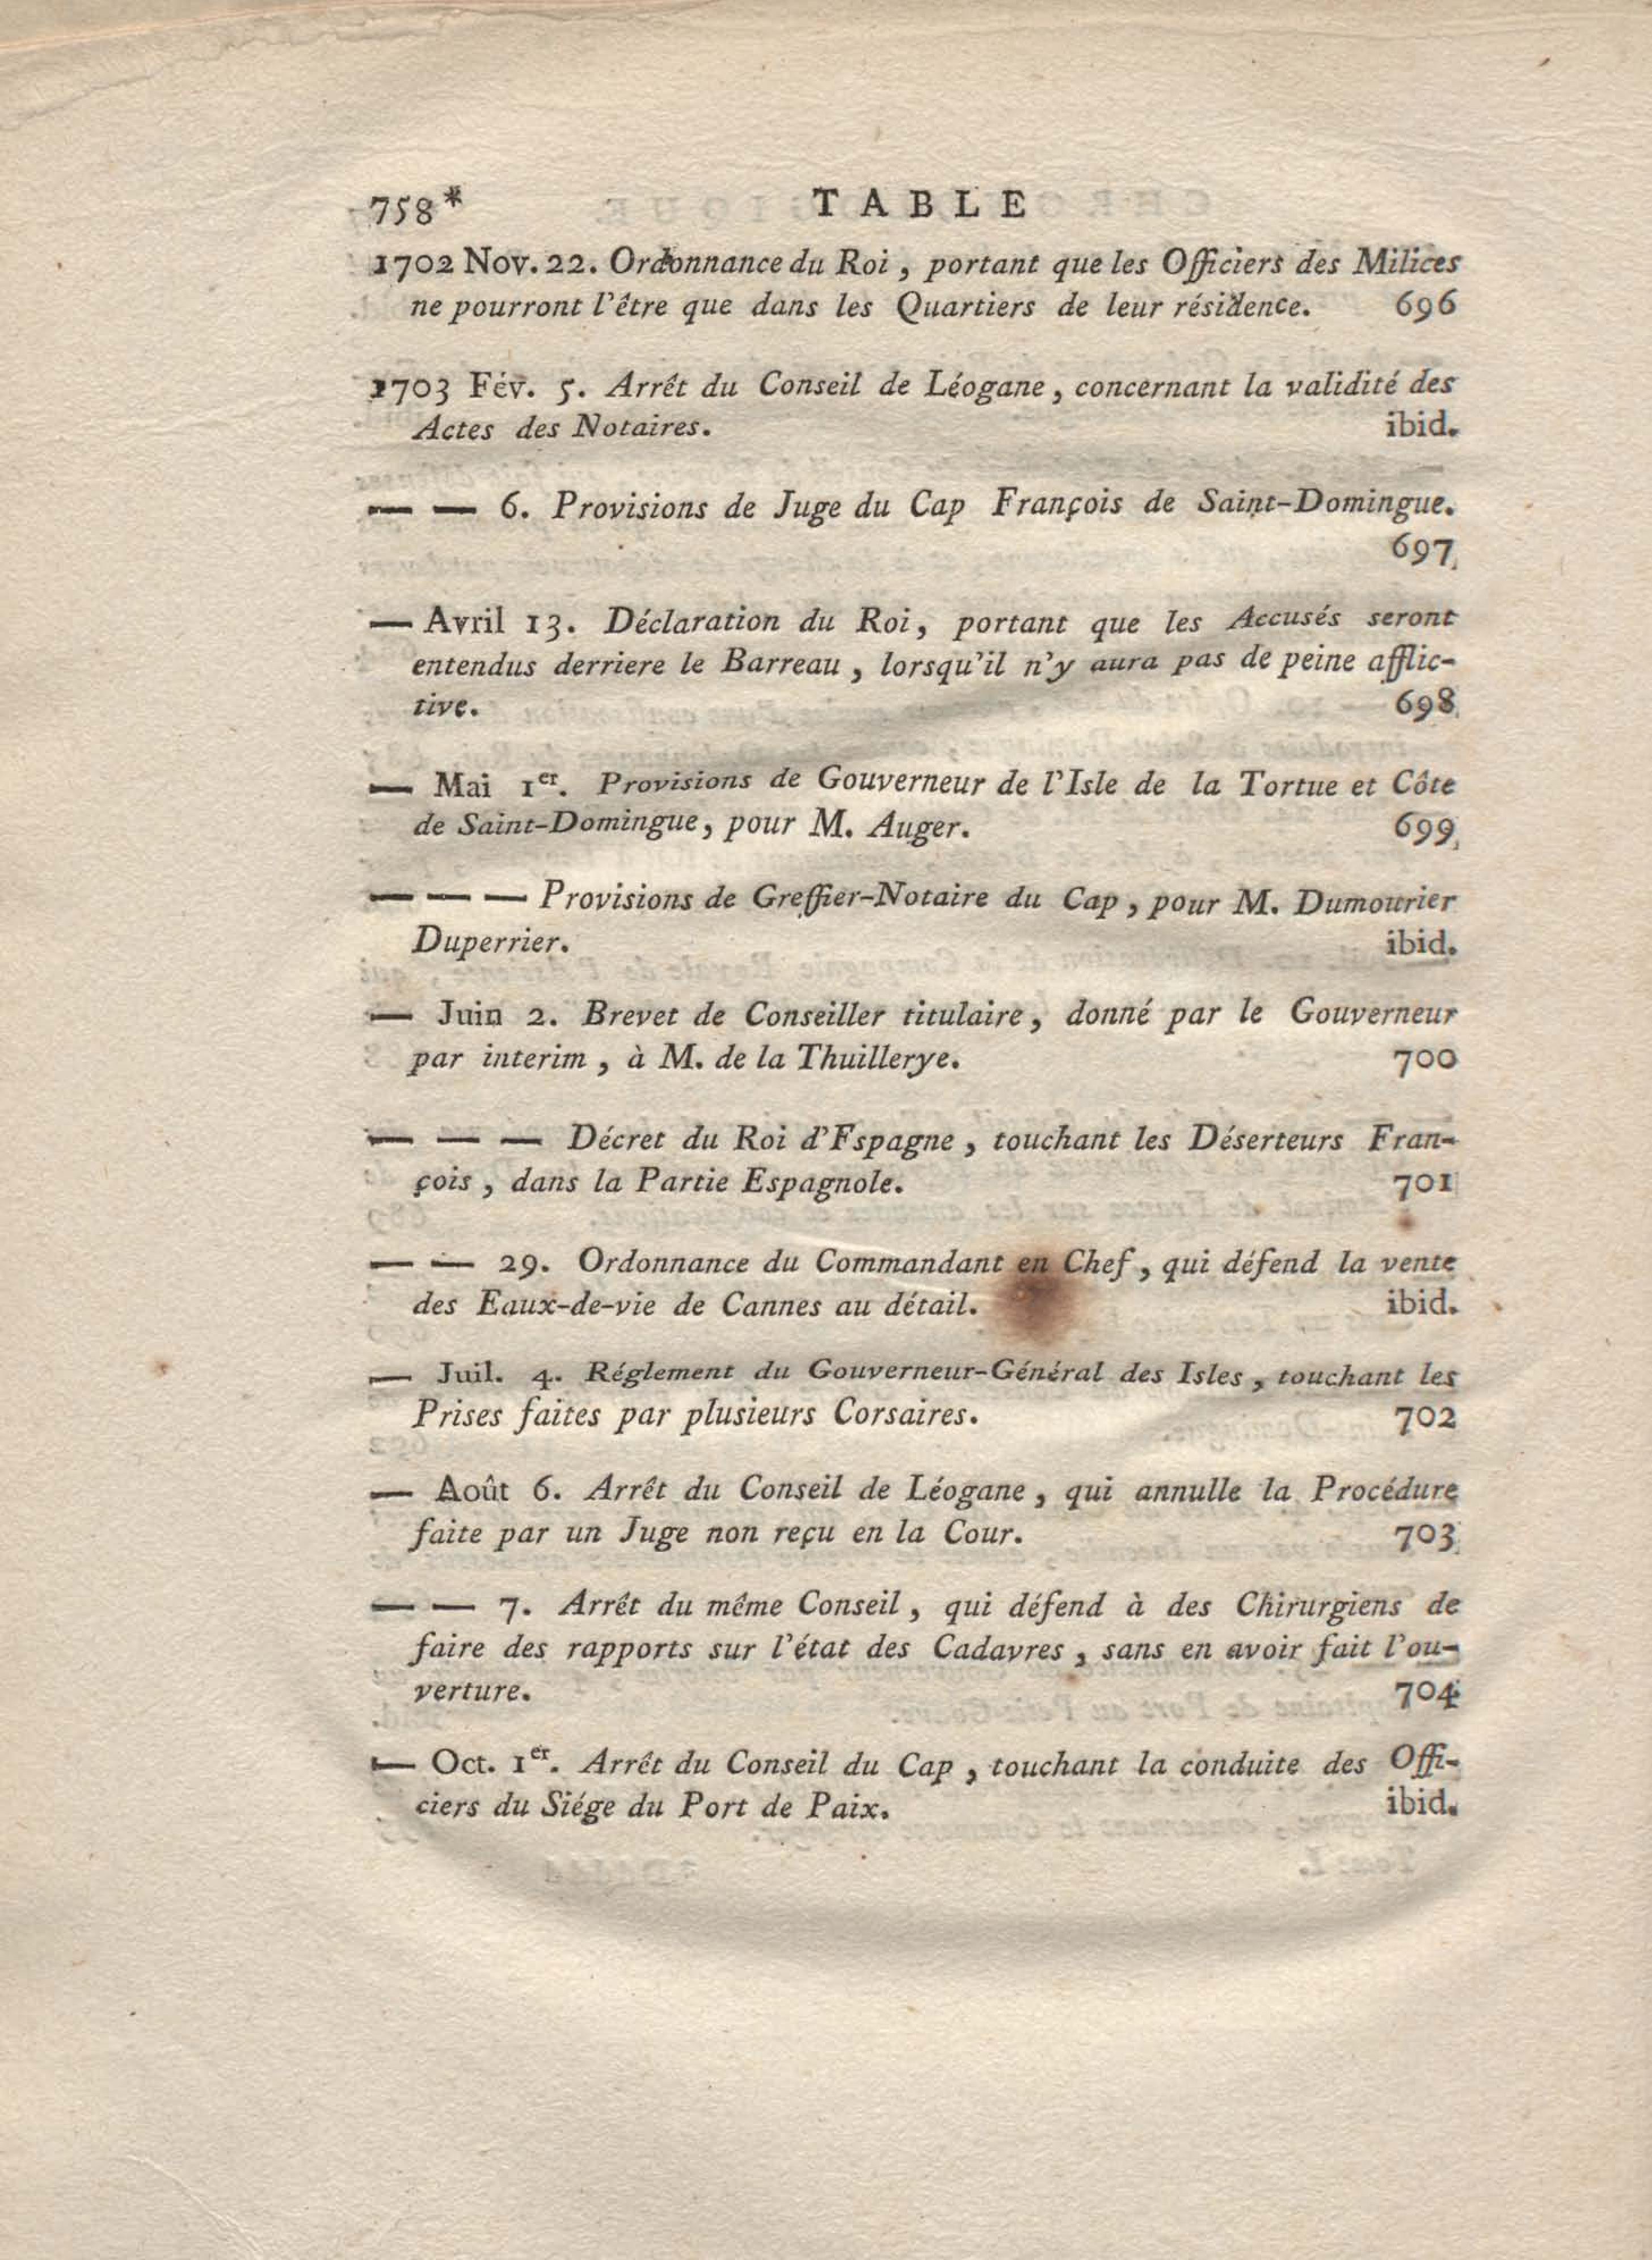 758*
TABLE
1702 Nov. 22. Ordonnance du Roi, portant que les Officiers des Milices
ne pourront l'être que dans les Quartiers de leur résidence. 696
1703 Fév. 5. Arrêt du Conseil de Léogane, concernant la validité des
Actes des Notaires. ibid.
— — 6. Provisions de Juge du Cap François de Saint-Domingue.
697
— Avril 13. Déclaration du Roi, portant que les Accusés seront
entendus derriere le Barreau, lorsqu'il n'y aura pas de peine afflic-
tive. 698
— Mai 1er. Provisions de Gouverneur de l'Isle de la Tortue et Côte
de Saint-Domingue, pour M. Auger. 699
— — — Provisions de Greffier-Notaire du Cap, pour M. Dumourier
Duperrier. ibid.
— Juin 2. Brevet de Conseiller titulaire, donné par le Gouverneur
par interim, à M. de la Thuillerye. 700
— — — Décret du Roi d'Fspagne, touchant les Déserteurs Fran-
çois, dans la Partie Espagnole. 701
— — 29. Ordonnance du Commandant en Chef, qui défend la vente
des Eaux-de-vie de Cannes au détail. ibid.
— Juil. 4. Réglement du Gouverneur-Général des Isles, touchant les
Prises faites par plusieurs Corsaires. 702
— Août 6. Arrêt du Conseil de Léogane, qui annulle la Procédure
faite par un Juge non reçu en la Cour. 703
— — 7. Arrêt du même Conseil, qui défend à des Chirurgiens de
faire des rapports sur l'état des Cadavres, sans en avoir fait l'ou-
verture. 704
— Oct. 1er. Arrêt du Conseil du Cap, touchant la conduite des Offi-
ciers du Siége du Port de Paix. ibid.